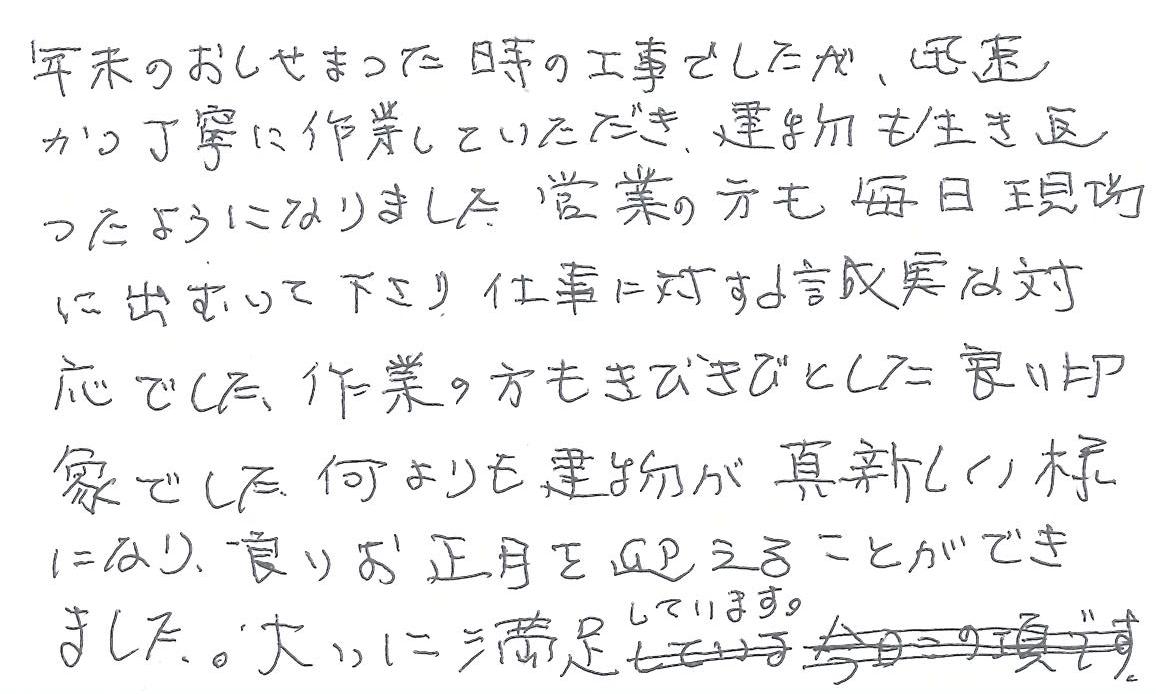 年末のおしせまった時の工事でしたが、迅速
かつ丁寧に作業していただき、建物も生き返
ったようになりました。営業の方も毎日現場
に出むいて下さり仕事に対する誠実な対
応でした、作業の方もきびきびとした良い印
象でした。何よりも建物が真新しい様
になり、良いお正月を迎えることができ
ました。。大いに満足しています。
している今日この頃です。